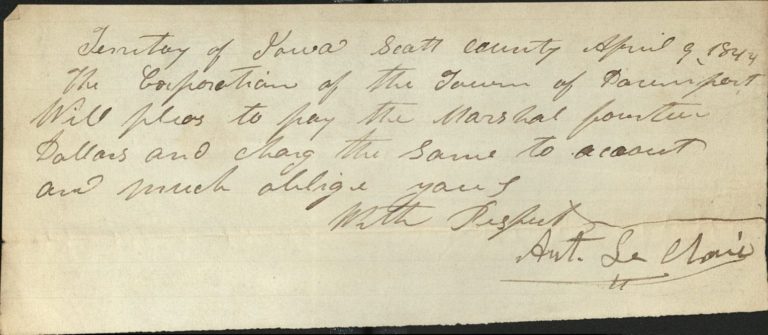 Territoy of Iowa Scott County April 9, 1844
The Corporation of the Town of Davenport
Will pleas to pay the Marshal fourteen
Dollars and charg the same to acount
and much oblige yours
With Respect
Ant. Le Claire